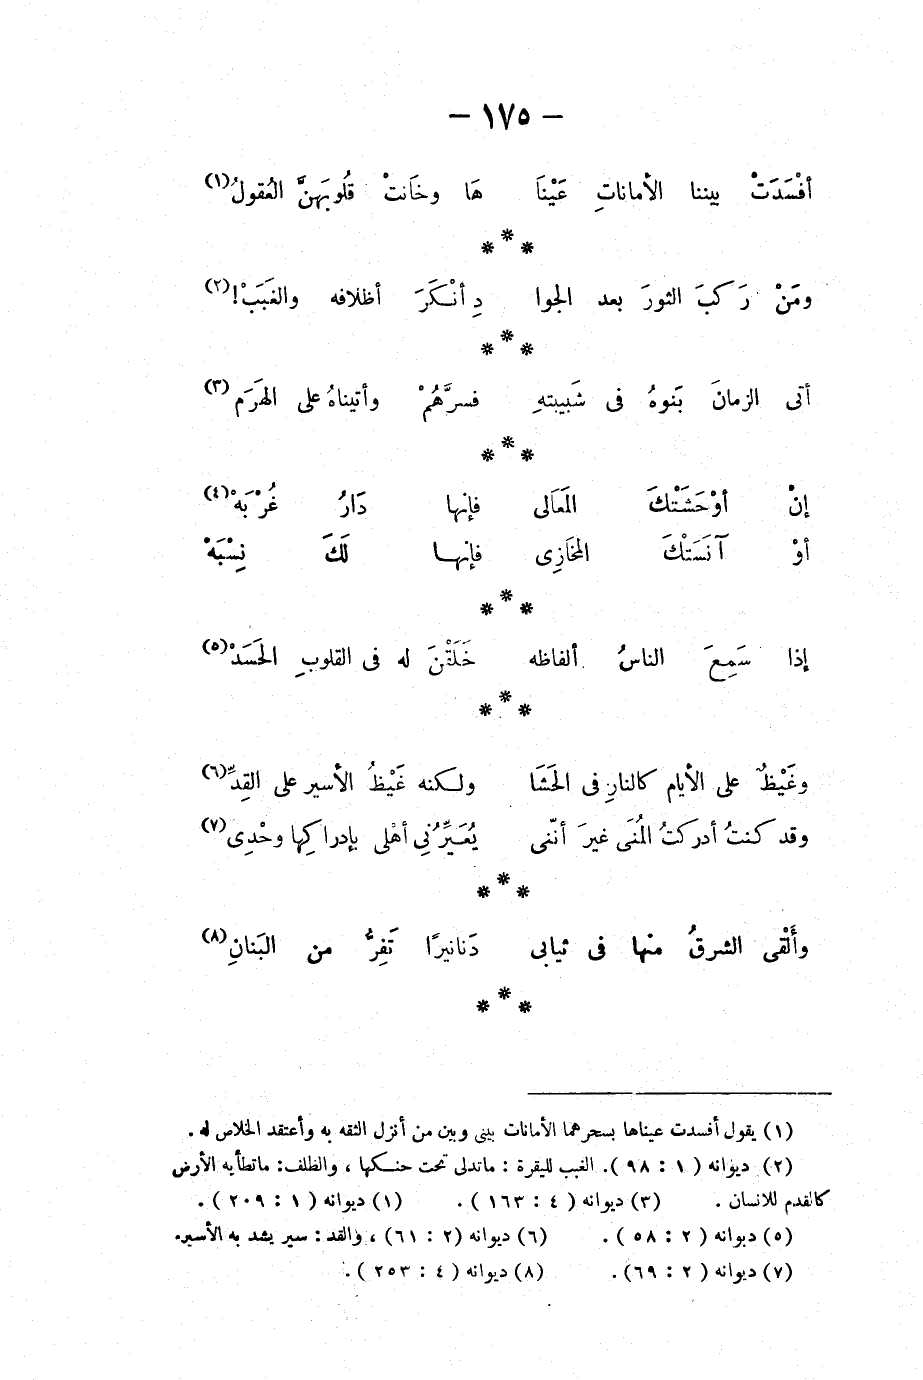 — ١٧٥ —
أفْسَدَتْ بيننا الأماناتِ عَيْنَا هَا وخَانتْ قُلوبَهنَّ العُقولُ(١)
***
ومَنْ رَكبَ الثورَ بعد الجوا دِ أنْكَرَ أظلافه والغَبَبْ!(٢)
***
أتى الزمانَ بَنوهُ فى شَبيبتهِ فسرَّهُمْ وأتيناهُ على الهَرَم(٣)
***
إنْ أوْحَشَتْكَ المَعَالى فإنها دَارُ غُرْبَهْ(٤)
أوْ آنَسَتْكَ المخَازِى فإنهـا لَكَ نِسْبَهْ
***
إذا سَمِعَ الناسُ ألفاظه خَلَقْنَ له فى القلوبِ الحَسَدْ(٥)
***
وغَيْظٌ على الأيام كالنارِ فى الحَشَا ولكنه غَيْظُ الأسير على القِدِّ(٦)
وقد كنتُ أدركتُ المُنَى غيرَ أنّنى يُعَيِّرُنِي أهْلى بإدراكِها وحْدِى(٧)
***
وأَلْقى الشرقُ منْها فى ثيابى دَنانيرًا تَفِرُّ من البَنانِ(٨)
***
(١) يقول أفسدت عيناها بسحرهما الأمانات بينى وبين من أنزل الثقه به وأعتقد الخلاص له .
(٢) ديوانه ( ١ : ٩٨ ). الغبب للبقرة : ماتدلى تحت حنكها ، والظلف: ماتطأ به الأرض
كالقدم للانسان . (٣) ديوانه ( ٤ : ١٦٣ ) . (١) ديوانه ( ١ : ٢٠٩ ) .
(٥) ديوانه ( ٢ : ٥٨ ) . (٦) ديوانه (٢ : ٦١) ، والقد : سير يشد به الأسير.
(٧) ديوانه ( ٢ : ٦٩). (٨) ديوانه ( ٤ : ٢٥٣ ) .